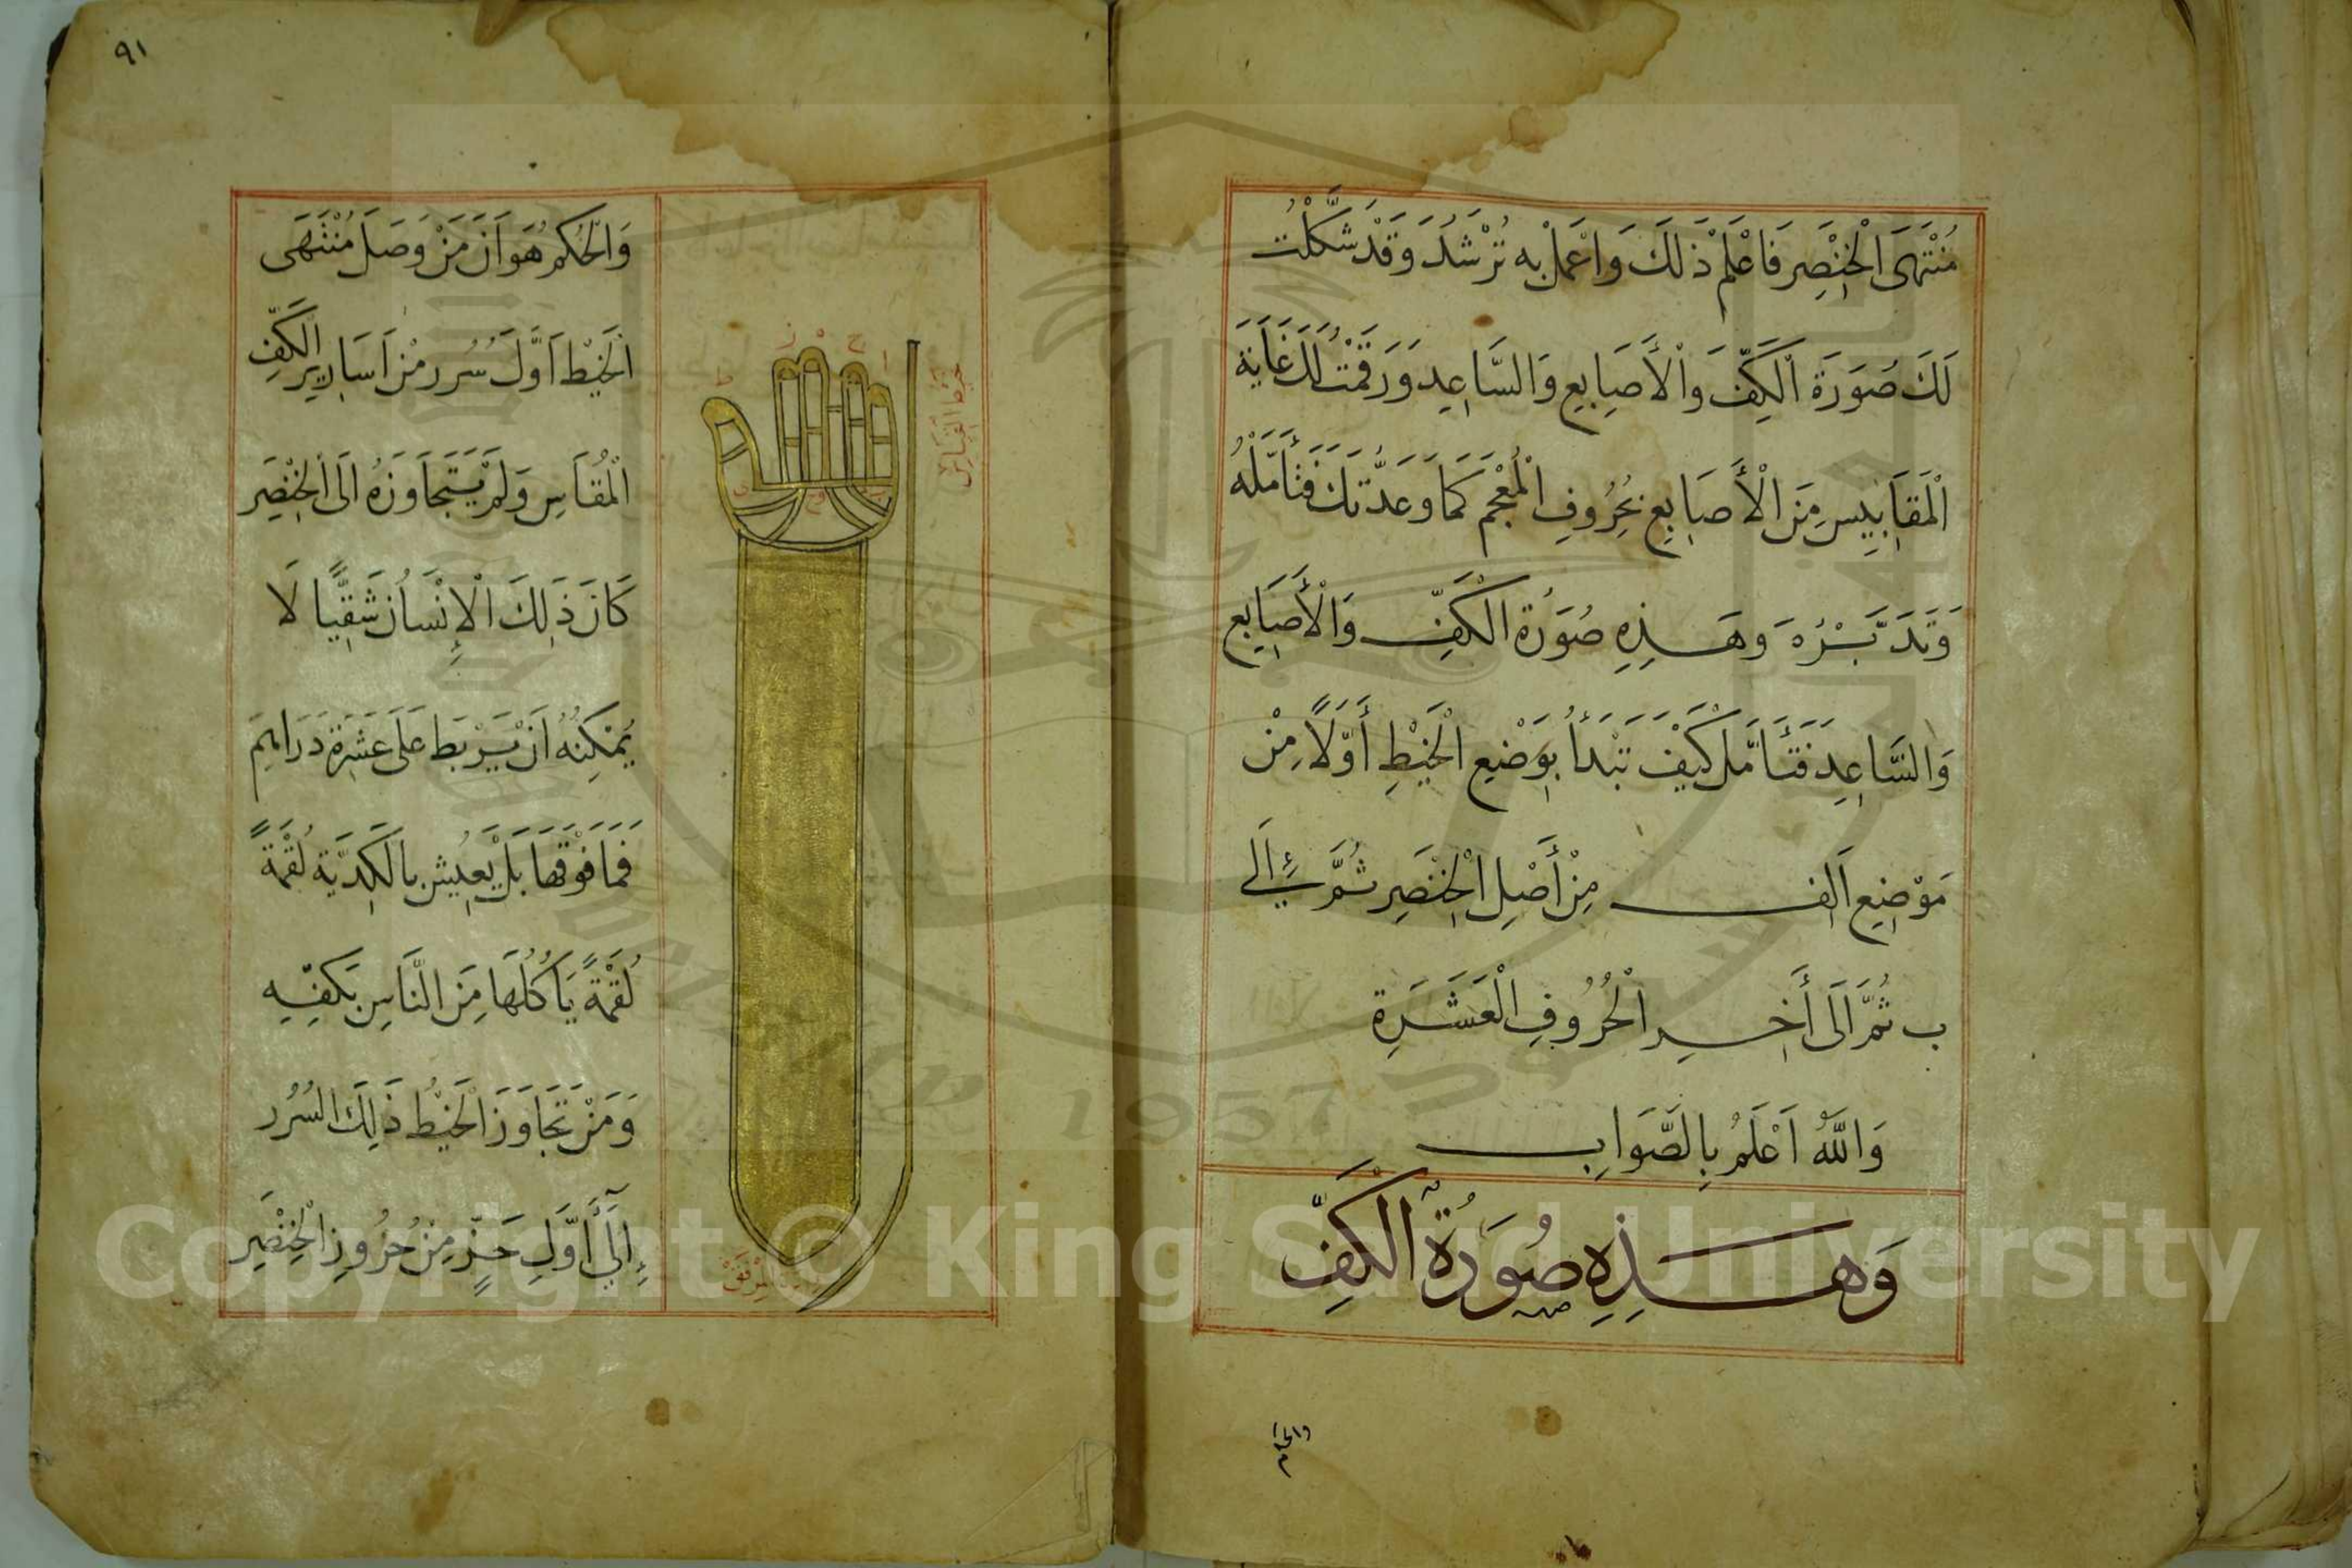 مُنْتَهَى الْخِنْصِرِ فَاعْلَمْ ذَلِكَ وَاعْمَلْ بِه تُرْشَدَ وَقَدْ شَكَّلْتُ
لَكَ صُورَةَ الْكَفِّ وَالْأَصَابِعِ وَالسَّاعِدِ وَرَقَمْتُ لَكَ غَايَةَ
الْمَقَايِيسِ مِنَ الْأَصَابِعِ بِحُرُوفِ الْمُعْجَمِ كَمَا وَعَدْتُكَ فَتَأَمَّلْهُ
وَتَدَبَّرْهُ وَهَذِهِ صُورَةُ الْكَفِّ وَالْأَصَابِعِ
وَالسَّاعِدِ فَتَأَمَّلْ كَيْفَ تَبْدَأُ بِوَضْعِ الْخَيْطِ أَوَّلًا مِنْ
مَوْضِعِ اَلِف مِنْ أَصْلِ الْخِنْصِرِ ثُمَّ إِلَى
ب ثُمَّ اَلَى أَخِرِ الْحُرُوفِ الْعَشَرَةِ
وَاللَّهُ اَعْلَمُ بِالصَّوَابِ
وَهَذِهِ صُورَةُ الْكَفِّ
والحكم
٩١
وَالْحُكْمُ هُوَ اَنَّ مَنْ وَصَلَ مُنْتَهَى
الْخَيْطِ اَوَّلَ سُرُرٍ مِنْ اَسَارِيرِ الْكَفِّ
الْمُقَاسِ وَلَمْ يَتَجَاوَزْهُ اِلَى الْخِنْصِرِ
كَانَ ذَلِكَ الْإِنْسَانُ شَقِيًّا لَا
يُمْكِنُهُ اَنْ يَرْبَطَ عَلَى عَشَرَةِ دَرَاهِمَ
فَمَا فَوْقَهَا بَلْ يَعِيشُ بِالْكِدْيَةِ لُقْمَةً
لُقْمَةً يَاكُلُهَا مِنَ النَّاسِ بِكَفِّهِ
وَمَنْ تَجَاوَزَ الْخَيْطُ ذَلِكَ السُرُر
اِلَى أَوَّلِ حَزٍّ مِنْ حُزُوزِ الْخِنْصِرِ
خيط القياس
ا
ح
ز
ط
المرفق
Copyright © King Saud University
1957